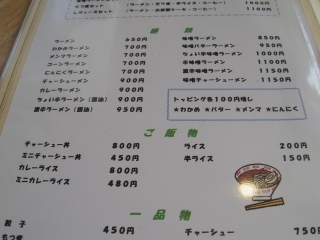 1000円
1100円
麺 類
ラーメン 650円
わかめラーメン 700円
メンマラーメン 700円
コーンラーメン 700円
にんにくラーメン 700円
チャーシューメン 900円
カレーラーメン 900円
ちょい辛ラーメン(醤油) 900円
激辛ラーメン(醤油) 950円
味噌ラーメン 850円
味噌バターラーメン 950円
ちょい辛味噌ラーメン 1050円
味噌カレーラーメン 1100円
激辛味噌ラーメン 1150円
味噌チャーシューメン 1150円
トッピング各100円増し
★わかめ ★バター ★メンマ ★にんにく
ご 飯 物
チャーシュー丼 800円
ミニチャーシュー丼 450円
カレーライス 800円
ミニカレーライス 480円
ライス 200円
半ライス 150円
一 品 物
餃 子 450円
チャーシュー 750円